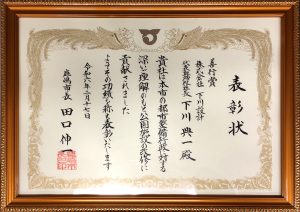 表彰状
善行賞
株式会社 下川設計
代表取締役社長 下川興一殿
貴社は本市の都市整備行政に対する
深い理解のもと公園施設の改修に
貢献されました
よってその功績を称え表彰いたします
令和六年二月十七日
市長 田口伸一